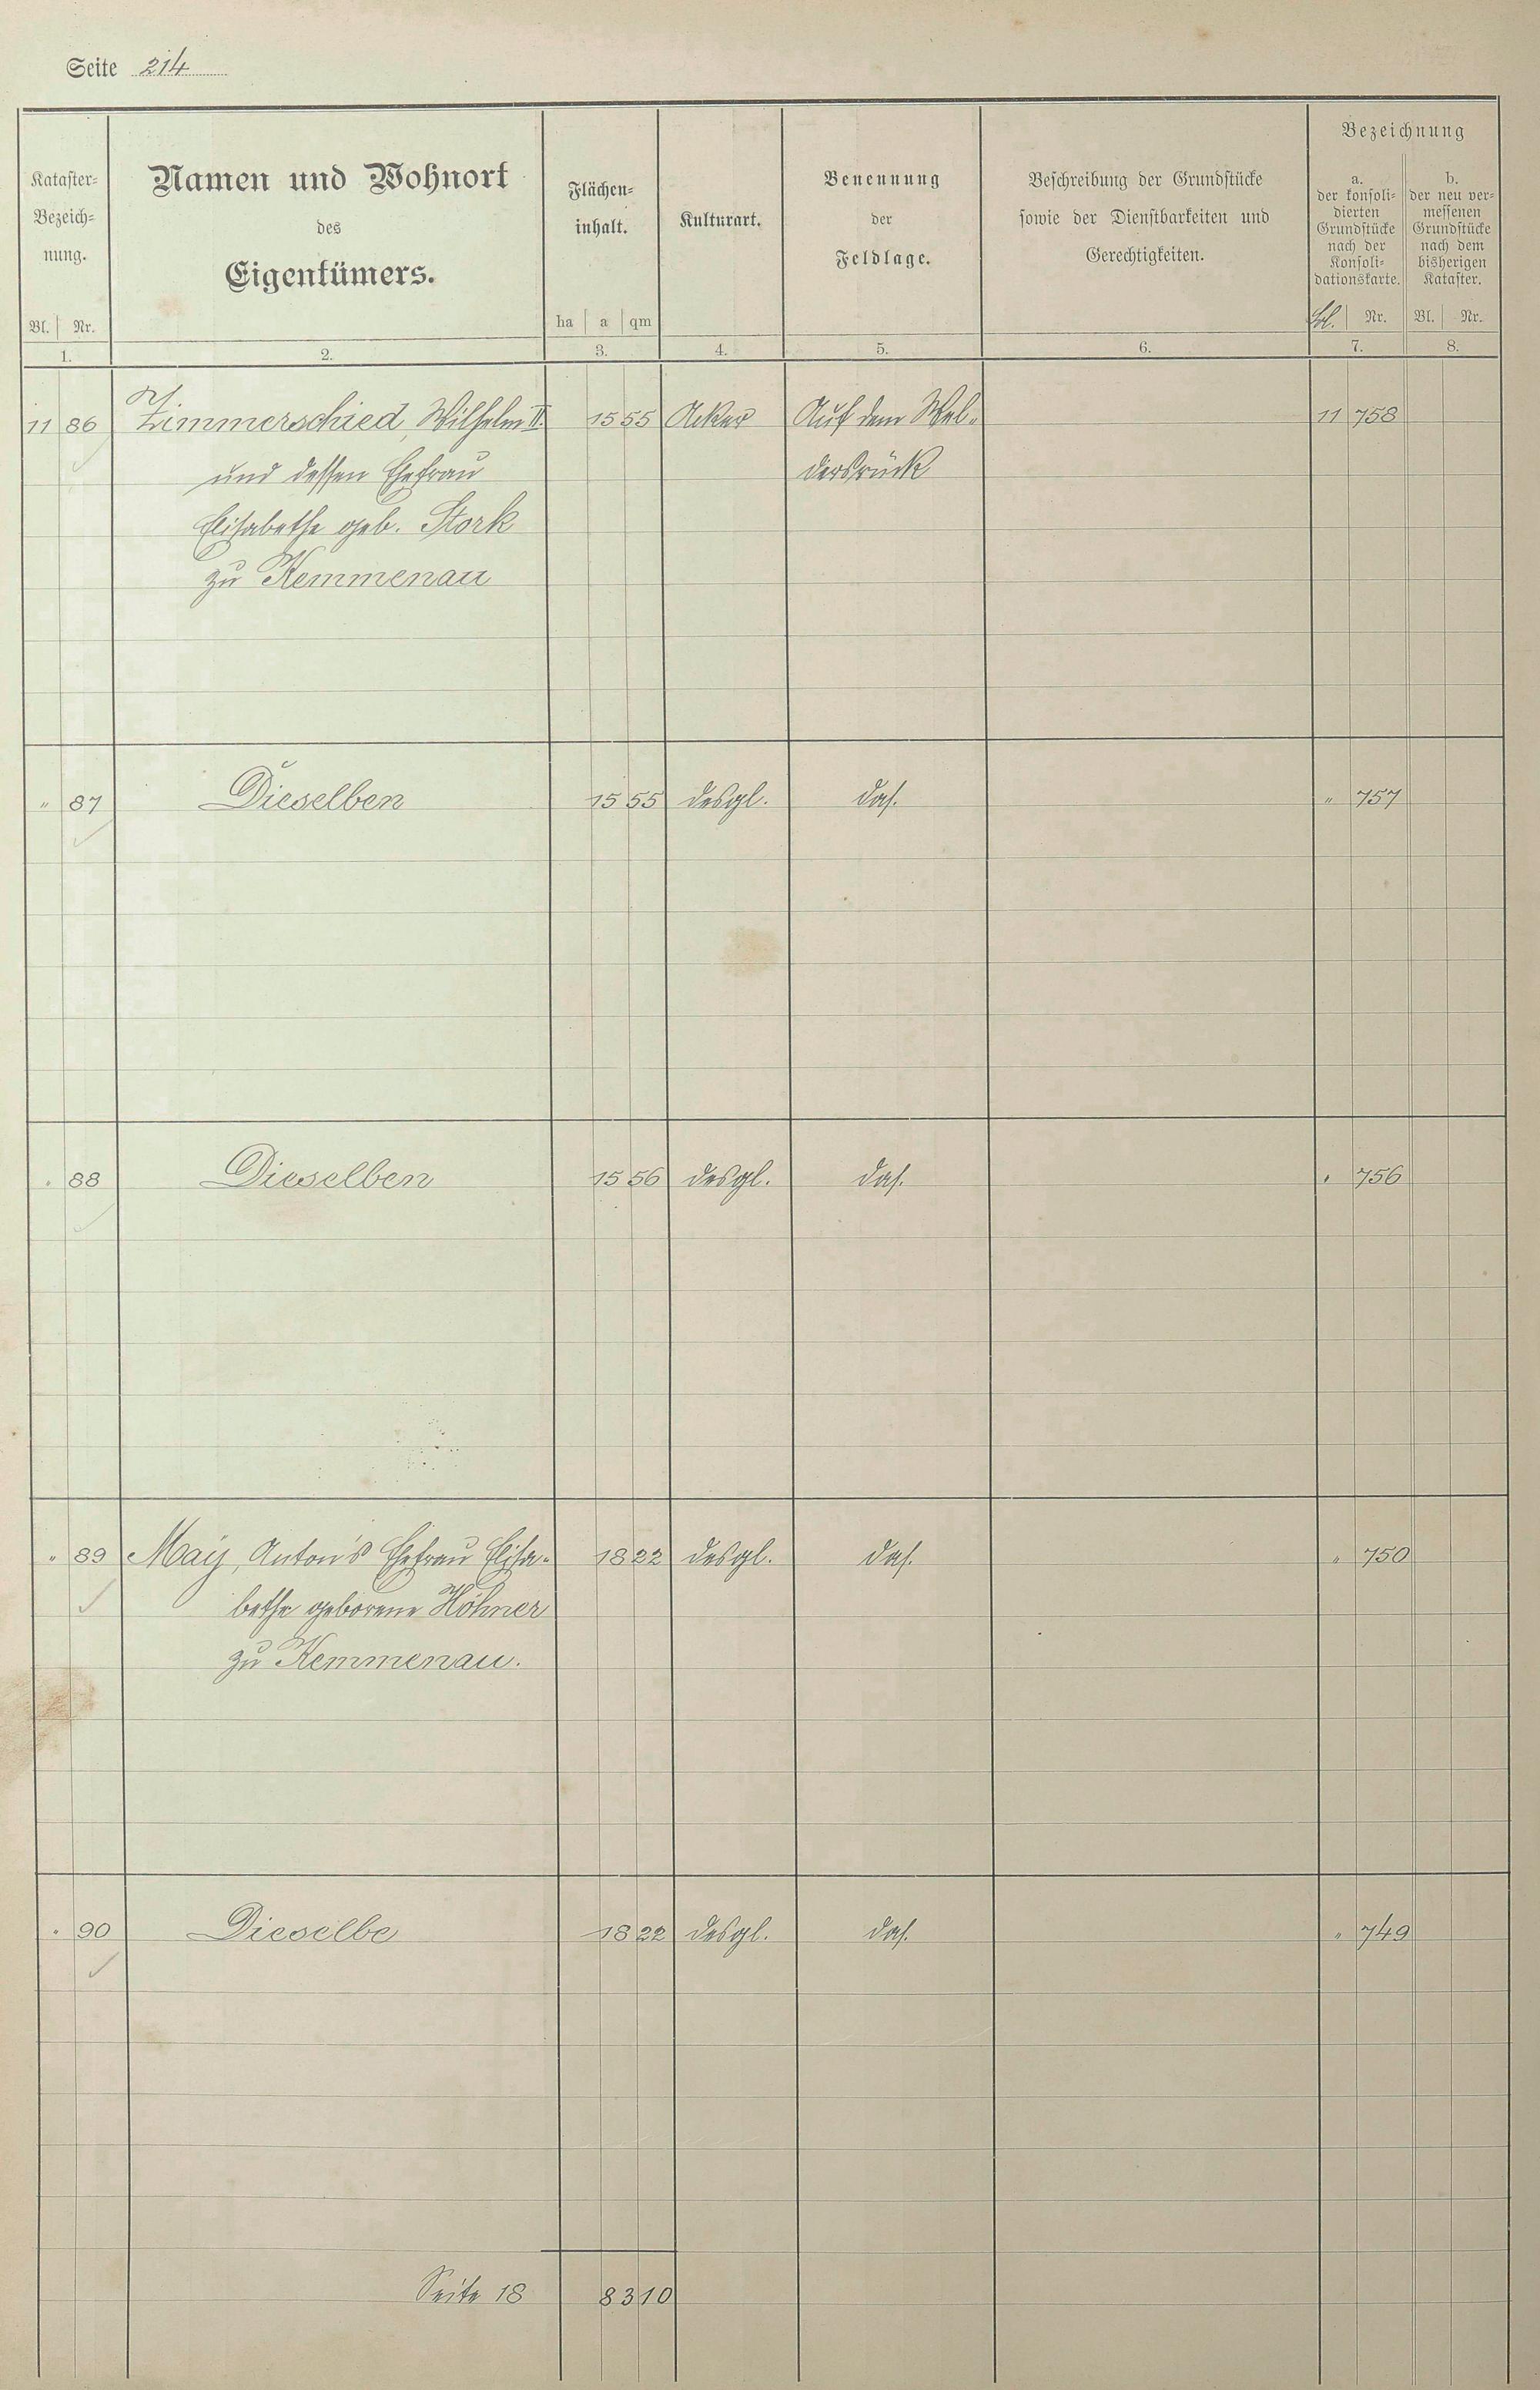 Seite 214
Kataster-
Bezeich-
nung.
Bl. Nr.
1.
Namen und Wohnort
des
Eigentümers.
2.
Flächen-
inhalt.
ha a qm
3.
Kulturart.
4.
Benennung
der
Feldlage.
5.
Beschreibung der Grundstücke
sowie der Dienstbarkeiten und
Gerechtigkeiten.
6.
Bezeichnung
a.
der konsoli-
dierten
Grundstücke
nach der
Konsoli-
dationskarte.
Bl. Nr.
7.
b.
der neu ver-
messenen
Grundstücke
nach dem
bisherigen
Kataster.
Bl. Nr.
8.
11 86 Zimmerschied, Wilhelm II. 15 55 Acker Auf dem 11 758
und dessen Ehefrau
Elisabethe geb. Stork
zu Kemmenau
" 87 Dieselben 15 55 desgl. das. " 757
" 88 Dieselben 15 56 desgl. das. " 756
" 89 May, Anton's Ehefrau Elisa- 18 22 desgl. das. " 750
bethe geborene Höhner
zu Kemmenau.
" 90 Dieselbe 18 22 desgl. das. " 749
Seite 18 83 10